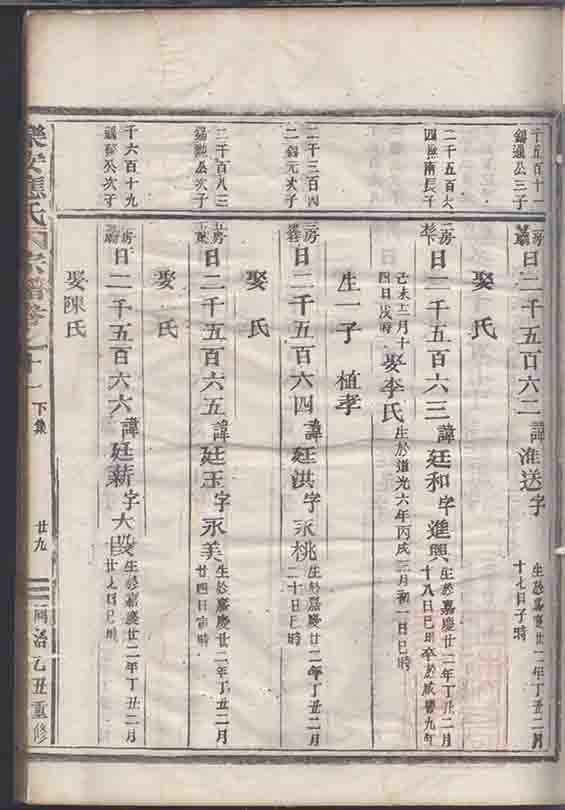 千五百十一
錫通公三子
房
日二千五百六二諱准送字
生於嘉慶廿二年丁丑二月
十七日子時
娶 氏
二千五百六二
房
日二千五百六三諱廷和字進興
生於嘉慶廿二年丁丑二月
十八日巳時卒於咸豐九年
己未十二月十
四日戌時
娶李氏
生於道光六年丙戌三月初一日巳時
生一子 植孝
二千三百四
二錫元次子
房
日二千五百六四諱廷洪字永桃
生於嘉慶廿二年丁丑二月
二十日巳時
娶 氏
二千百八三
公次子
房
日二千五百六五諱廷玉字永美
生於嘉慶廿二年丁丑二月
廿四日寅時
娶 氏
千六百十九
公次子
房
日二千五百六六諱廷薪字大
生於嘉慶廿二年丁丑二月
廿七日巳時
娶陳氏
樂安應氏宗譜卷之十一
下集
廿九
同治乙丑重修